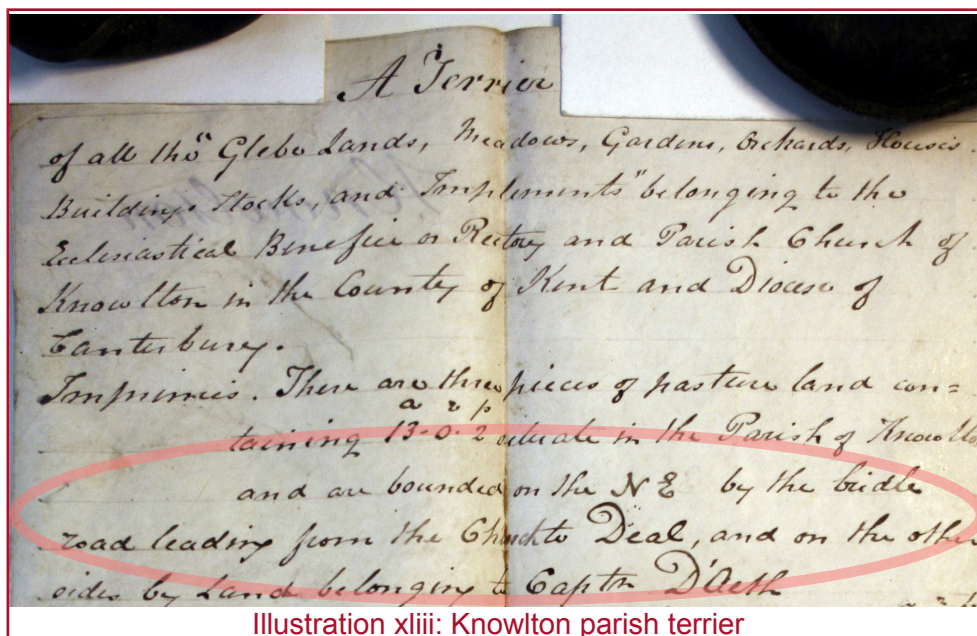 A Terrier
of all the "Glebe Lands, Meadows, Gardens, Orchards, Houses.
Buildings Stocks, and Implements" belonging to the
Ecclesiastical Benefice or Rectory and Parish Church of
Knowlton in the County of Kent and Diocese of
Canterbury.
Imprimis. There are three pieces of pasture land con=
a r p
taining 13-0-2 situate in the Parish of Knowlton
and are bounded on the N E by the bridle
road leading from the Church to Deal, and on the other
sides by Land belonging to Captn D'Aeth
Illustration xliii: Knowlton parish terrier